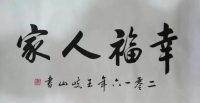 幸福人家
二零一六年王岐山書